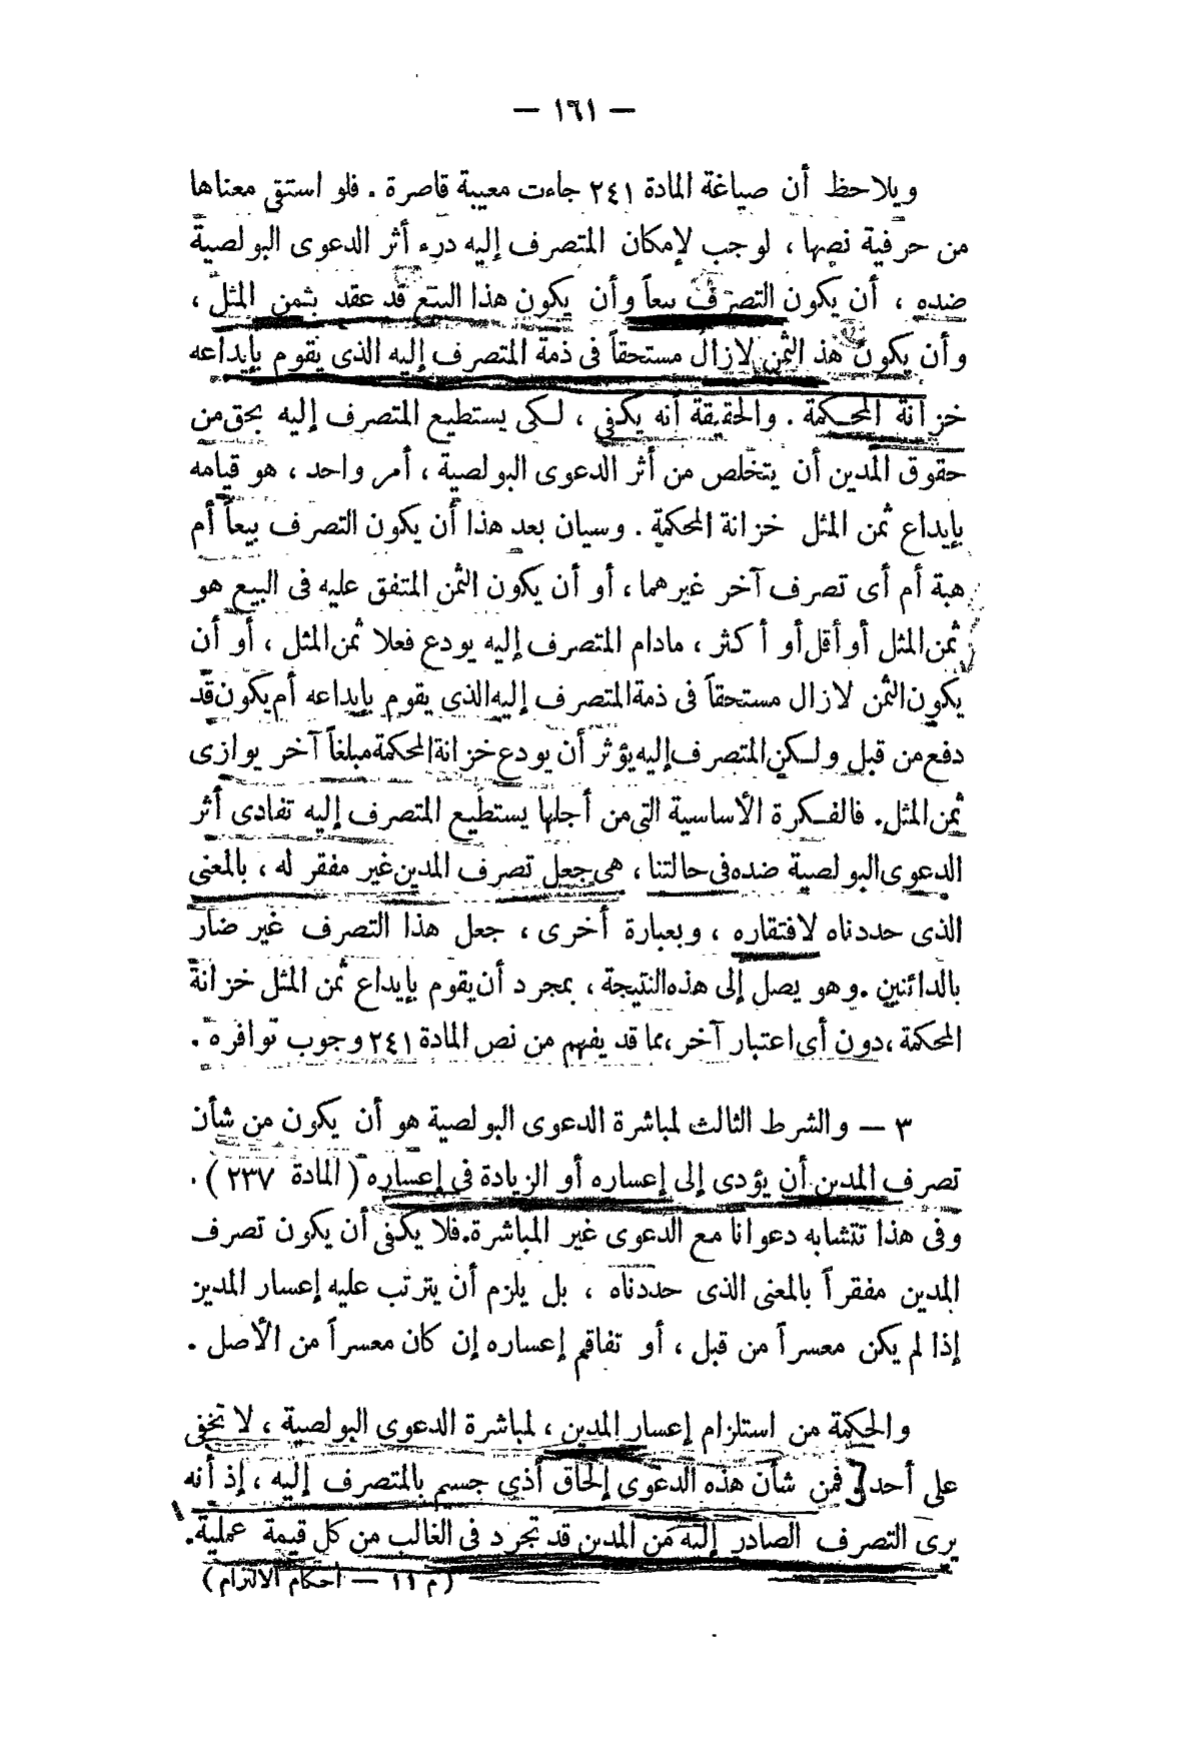 — ١٦١ —
ويلاحظ أن صياغة المادة ٢٤١ جاءت معيبة قاصرة . فلو استقى معناها
من حرفية نصها ، لوجب لإمكان المتصرف إليه درء أثر الدعوى البولصية
ضده ، أن يكون التصرف بيعاً وأن يكون هذا البيع قد عقد بثمن المثل ،
وأن يكون هذ الثمن لازال مستحقاً فى ذمة المتصرف إليه الذى يقوم بإيداعه
خزانة المحكمة . والحقيقة أنه يكفى ، لكى يستطيع المتصرف إليه بحق من
حقوق المدين أن يتخلص من أثر الدعوى البولصية ، أمر واحد ، هو قيامه
بإيداع ثمن المثل خزانة المحكمة . وسيان بعد هذا أن يكون التصرف بيعاً أم
هبة أم أى تصرف آخر غيرهما ، أو أن يكون الثمن المتفق عليه فى البيع هو
ثمن المثل أو أقل أو أكثر ، مادام المتصرف إليه يودع فعلا ثمن المثل ، أو أن
يكون الثمن لازال مستحقاً فى ذمة المتصرف إليه الذى يقوم بإيداعه أم يكون قد
دفع من قبل ولكن المتصرف إليه يؤثر أن يودع خزانة المحكمة مبلغاً آخر يوازى
ثمن المثل. فالفكرة الأساسية التى من أجلها يستطيع المتصرف إليه تفادى أثر
الدعوى البولصية ضده فى حالتنا ، هى جعل تصرف المدين غير مفقر له ، بالمعنى
الذى حددناه لافتقاره ، وبعبارة أخرى ، جعل هذا التصرف غير ضار
بالدائنين . وهو يصل إلى هذه النتيجة ، بمجرد أن يقوم بإيداع ثمن المثل خزانة
المحكمة ، دون أى اعتبار آخر ، مما قد يفهم من نص المادة ٢٤١ وجوب توافره .
٣ — والشرط الثالث لمباشرة الدعوى البولصية هو أن يكون من شأن
تصرف المدين أن يؤدى إلى إعساره أو الزيادة فى إعساره ( المادة ٢٣٧ ) .
وفى هذا تتشابه دعوانا مع الدعوى غير المباشرة. فلا يكفى أن يكون تصرف
المدين مفقراً بالمعنى الذى حددناه ، بل يلزم أن يترتب عليه إعسار المدين
إذا لم يكن معسراً من قبل ، أو تفاقم إعساره إن كان معسراً من الأصل .
والحكمة من استلزام إعسار المدين ، لمباشرة الدعوى البولصية ، لا تخفى
على أحد . فمن شأن هذه الدعوى إلحاق أذي جسيم بالمتصرف إليه ، إذ أنه
يرى التصرف الصادر إليه من المدين قد تجرد فى الغالب من كل قيمة عملية.
(م ١١ — أحكام الالتزام)